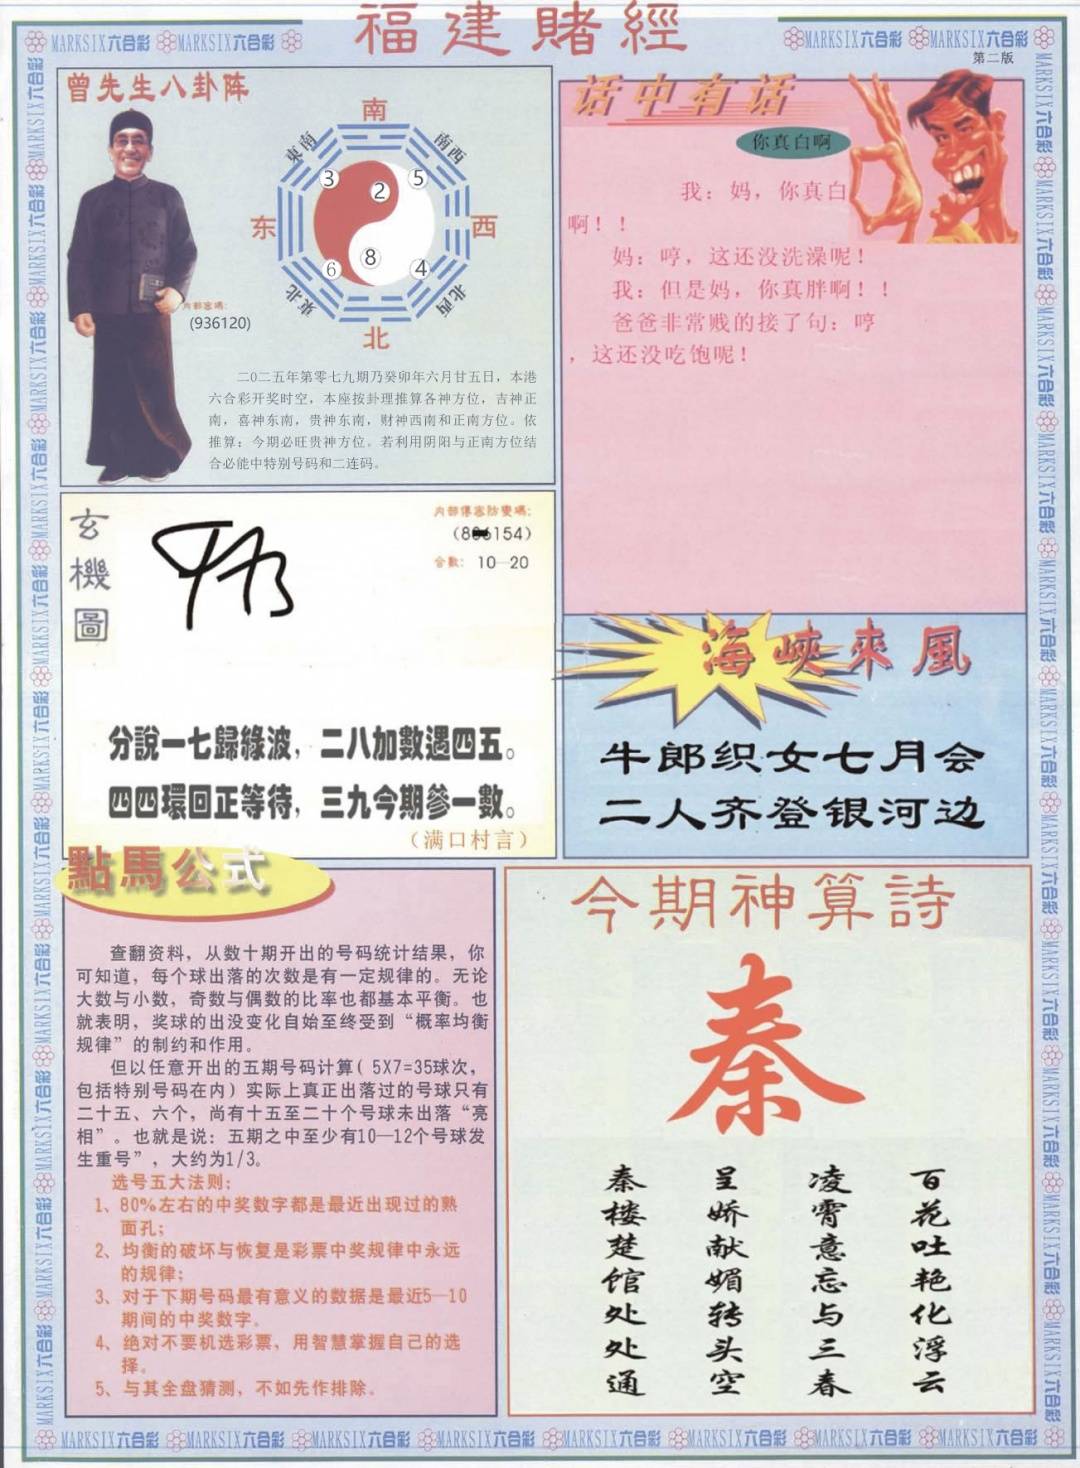 福建賭經
MARKSIX六合彩 MARKSIX六合彩
MARKSIX六合彩 MARKSIX六合彩
第二版
曾先生八卦阵
南
東南
南西
3
2
5
东
西
6
8
4
東北
北西
北
内部密碼:
(936120)
二0二五年第零七九期乃癸卯年六月廿五日，本港
六合彩开奖时空，本座按卦理推算各神方位，吉神正
南，喜神东南，贵神东南，财神西南和正南方位。依
推算；今期必旺贵神方位。若利用阴阳与正南方位结
合必能中特别号码和二连码。
话中有话
你真白啊
我：妈，你真白
啊！！
妈：哼，这还没洗澡呢！
我：但是妈，你真胖啊！！
爸爸非常贱的接了句：哼
，这还没吃饱呢！
玄機圖
内部傳密防變碼:
154)
合數: 10—20
分說一七歸綠波，二八加數遇四五。
四四環回正等待，三九今期參一數。
（满口村言）
海峽來風
牛郎织女七月会
二人齐登银河边
點馬公式
查翻资料，从数十期开出的号码统计结果，你
可知道，每个球出落的次数是有一定规律的。无论
大数与小数，奇数与偶数的比率也都基本平衡。也
就表明，奖球的出没变化自始至终受到“概率均衡
规律”的制约和作用。
但以任意开出的五期号码计算( 5X7=35球次，
包括特别号码在内）实际上真正出落过的号球只有
二十五、六个，尚有十五至二十个号球未出落“亮
相”。也就是说：五期之中至少有10—12个号球发
生重号”，大约为1/3。
选号五大法则:
1、80%左右的中奖数字都是最近出现过的熟
面孔；
2、均衡的破坏与恢复是彩票中奖规律中永远
的规律；
3、对于下期号码最有意义的数据是最近5—10
期间的中奖数字。
4、绝对不要机选彩票，用智慧掌握自己的选
择。
5、与其全盘猜测，不如先作排除。
今期神算詩
秦
秦楼楚馆处处通
呈娇献媚转头空
凌霄意忘与三春
百花吐艳化浮云
MARKSIX六合彩 MARKSIX六合彩 MARKSIX六合彩 MARKSIX六合彩 MARKSIX六合彩 MARKSIX六合彩 MARKSIX六合彩 MARKSIX六合彩